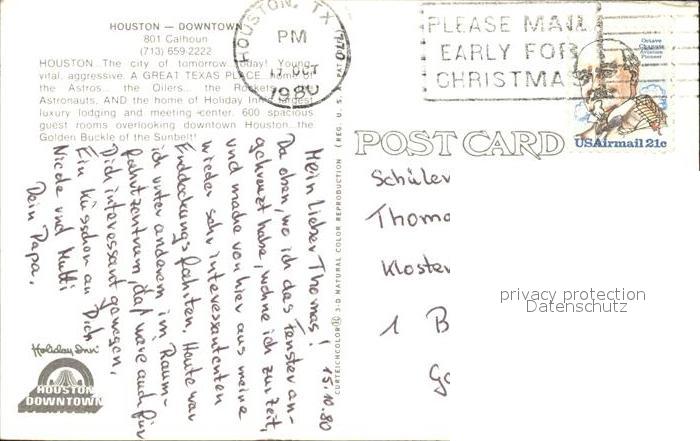 HOUSTON — DOWNTOWN
801 Calhoun
(713) 659-2222
HOUSTON. The city of tomorrow, today! Young,
vital, aggressive. A GREAT TEXAS PLACE. Home of
the Astros... the Oilers... the Rockets...
Astronauts, AND the home of Holiday Inn's largest
luxury lodging and meeting center. 600 spacious
guest rooms overlooking downtown Houston...the
Golden Buckle of the Sunbelt!
HOUSTON, TX
PM
17 OCT
1980
PLEASE MAIL
EARLY FOR
CHRISTMAS
Octave
Chanute
Aviation
Pioneer
USAirmail 21c
POST CARD
15.10.80
Mein lieber Thomas!
Da oben, wo ich das Fenster an-
gekreuzt habe, wohne ich zur Zeit,
und mache von hier aus meine
wieder sehr interessanten
Entdeckungsfahrten. Heute war
ich unter anderem im Raum-
fahrtzentrum, das wäre auch für
Dich interessant gewesen.
Ein Küsschen an Dich
Nicole und Mutti
Dein Papa.
CURTEICHCOLOR® 3-D NATURAL COLOR REPRODUCTION (REG. U.S.A.
Schüler
Thoma
Kloster
1 B
Go
privacy protection
Datenschutz
Holiday Inn
HOUSTON
DOWNTOWN